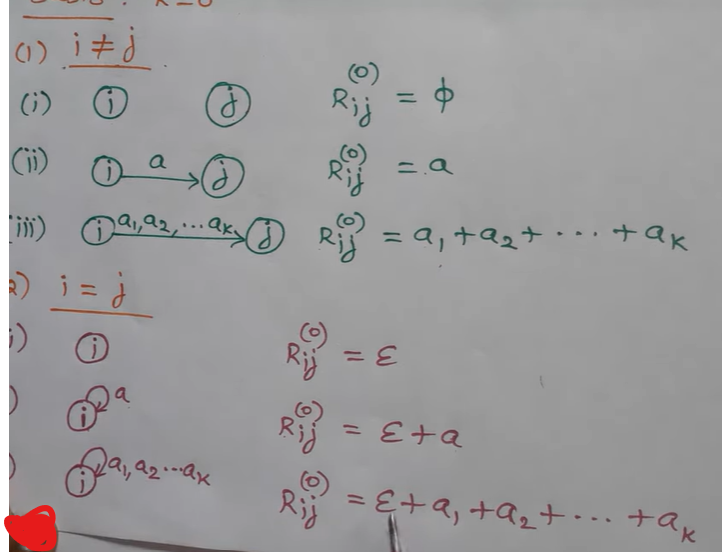 k=0
(1) i ≠ j
(i) i j R_ij^(0) = ϕ
(ii) i a j R_ij^(0) = a
iii) i a₁,a₂,...aₖ j R_ij^(0) = a₁ + a₂ + ... + aₖ
2) i = j
i) i R_ij^(0) = ε
) i a R_ij^(0) = ε + a
) i a₁,a₂...aₖ R_ij^(0) = ε + a₁ + a₂ + ... + aₖ